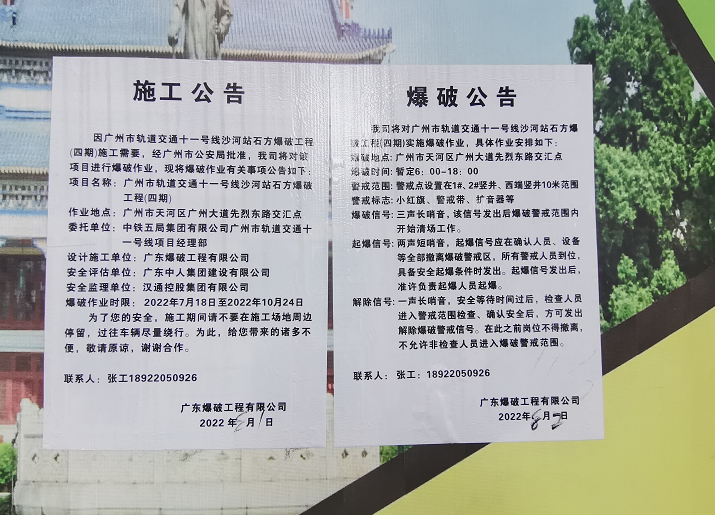 施工公告
因广州市轨道交通十一号线沙河站石方爆破工程
(四期)施工需要，经广州市公安局批准，我司将对该
项目进行爆破作业，现将爆破作业有关事项公告如下：
项目名称：广州市轨道交通十一号线沙河站石方爆破
工程(四期)
作业地点：广州市天河区广州大道先烈东路交汇点
委托单位：中铁五局集团有限公司广州市轨道交通十
一号线项目经理部
设计施工单位：广东爆破工程有限公司
安全评估单位：广东中人集团建设有限公司
安全监理单位：汉通控股集团有限公司
爆破作业时限：2022年7月18日至2022年10月24日
为了您的安全，施工期间请不要在施工场地周边
停留，过往车辆尽量绕行。为此，给您带来的诸多不
便，敬请原谅，谢谢合作。
联系人：张工18922050926
广东爆破工程有限公司
2022年8月1日
爆破公告
我司将对广州市轨道交通十一号线沙河站石方爆
破工程(四期)实施爆破作业，具体作业安排如下：
爆破地点：广州市天河区广州大道先烈东路交汇点
爆破时间：暂定6：00-18：00
警戒范围：警戒点设置在1#、2#竖井、西端竖井10米范围
警戒标志：小红旗、警戒带、扩音器等
爆破信号：三声长哨音，该信号发出后爆破警戒范围内
开始清场工作。
起爆信号：两声短哨音，起爆信号应在确认人员、设备
等全部撤离爆破警戒区，所有警戒人员到位，
具备安全起爆条件时发出。起爆信号发出后，
准许负责起爆人员起爆。
解除信号：一声长哨音，安全等待时间过后，检查人员
进入警戒范围检查、确认安全后，方可发出
解除爆破警戒信号。在此之前岗位不得撤离，
不允许非检查人员进入爆破警戒范围。
联系人：张工：18922050926
广东爆破工程有限公司
2022年8月2日